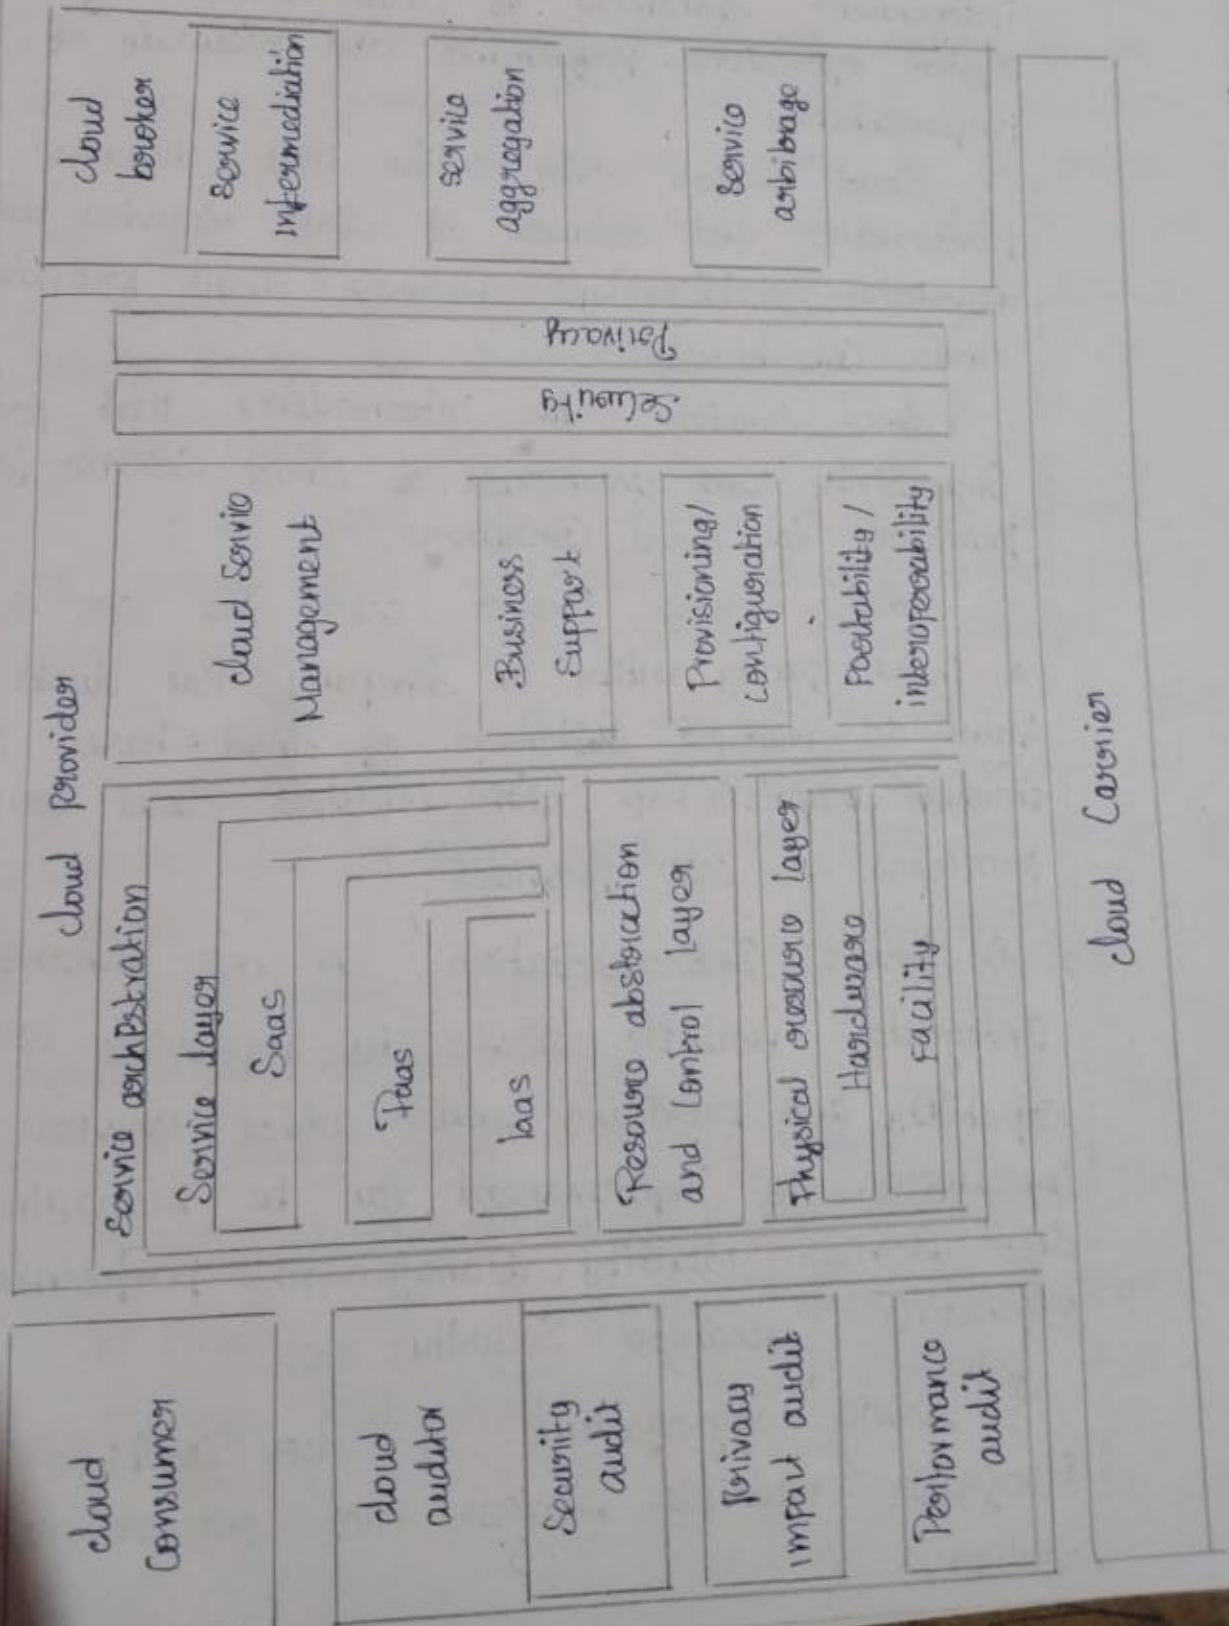 cloud
Consumer
cloud
auditor
Security
audit
Privacy
impact audit
Performance
audit
cloud provider
Service orchestration
Service layer
Saas
Paas
Iaas
Resource abstraction
and control layer
Physical resource layer
Hardware
Facility
cloud Service
Management
Business
Support
Provisioning/
configuration
Portability /
interoperability
Security
Privacy
cloud
broker
Service
intermediation
service
aggregation
Service
arbitrage
cloud Carrier